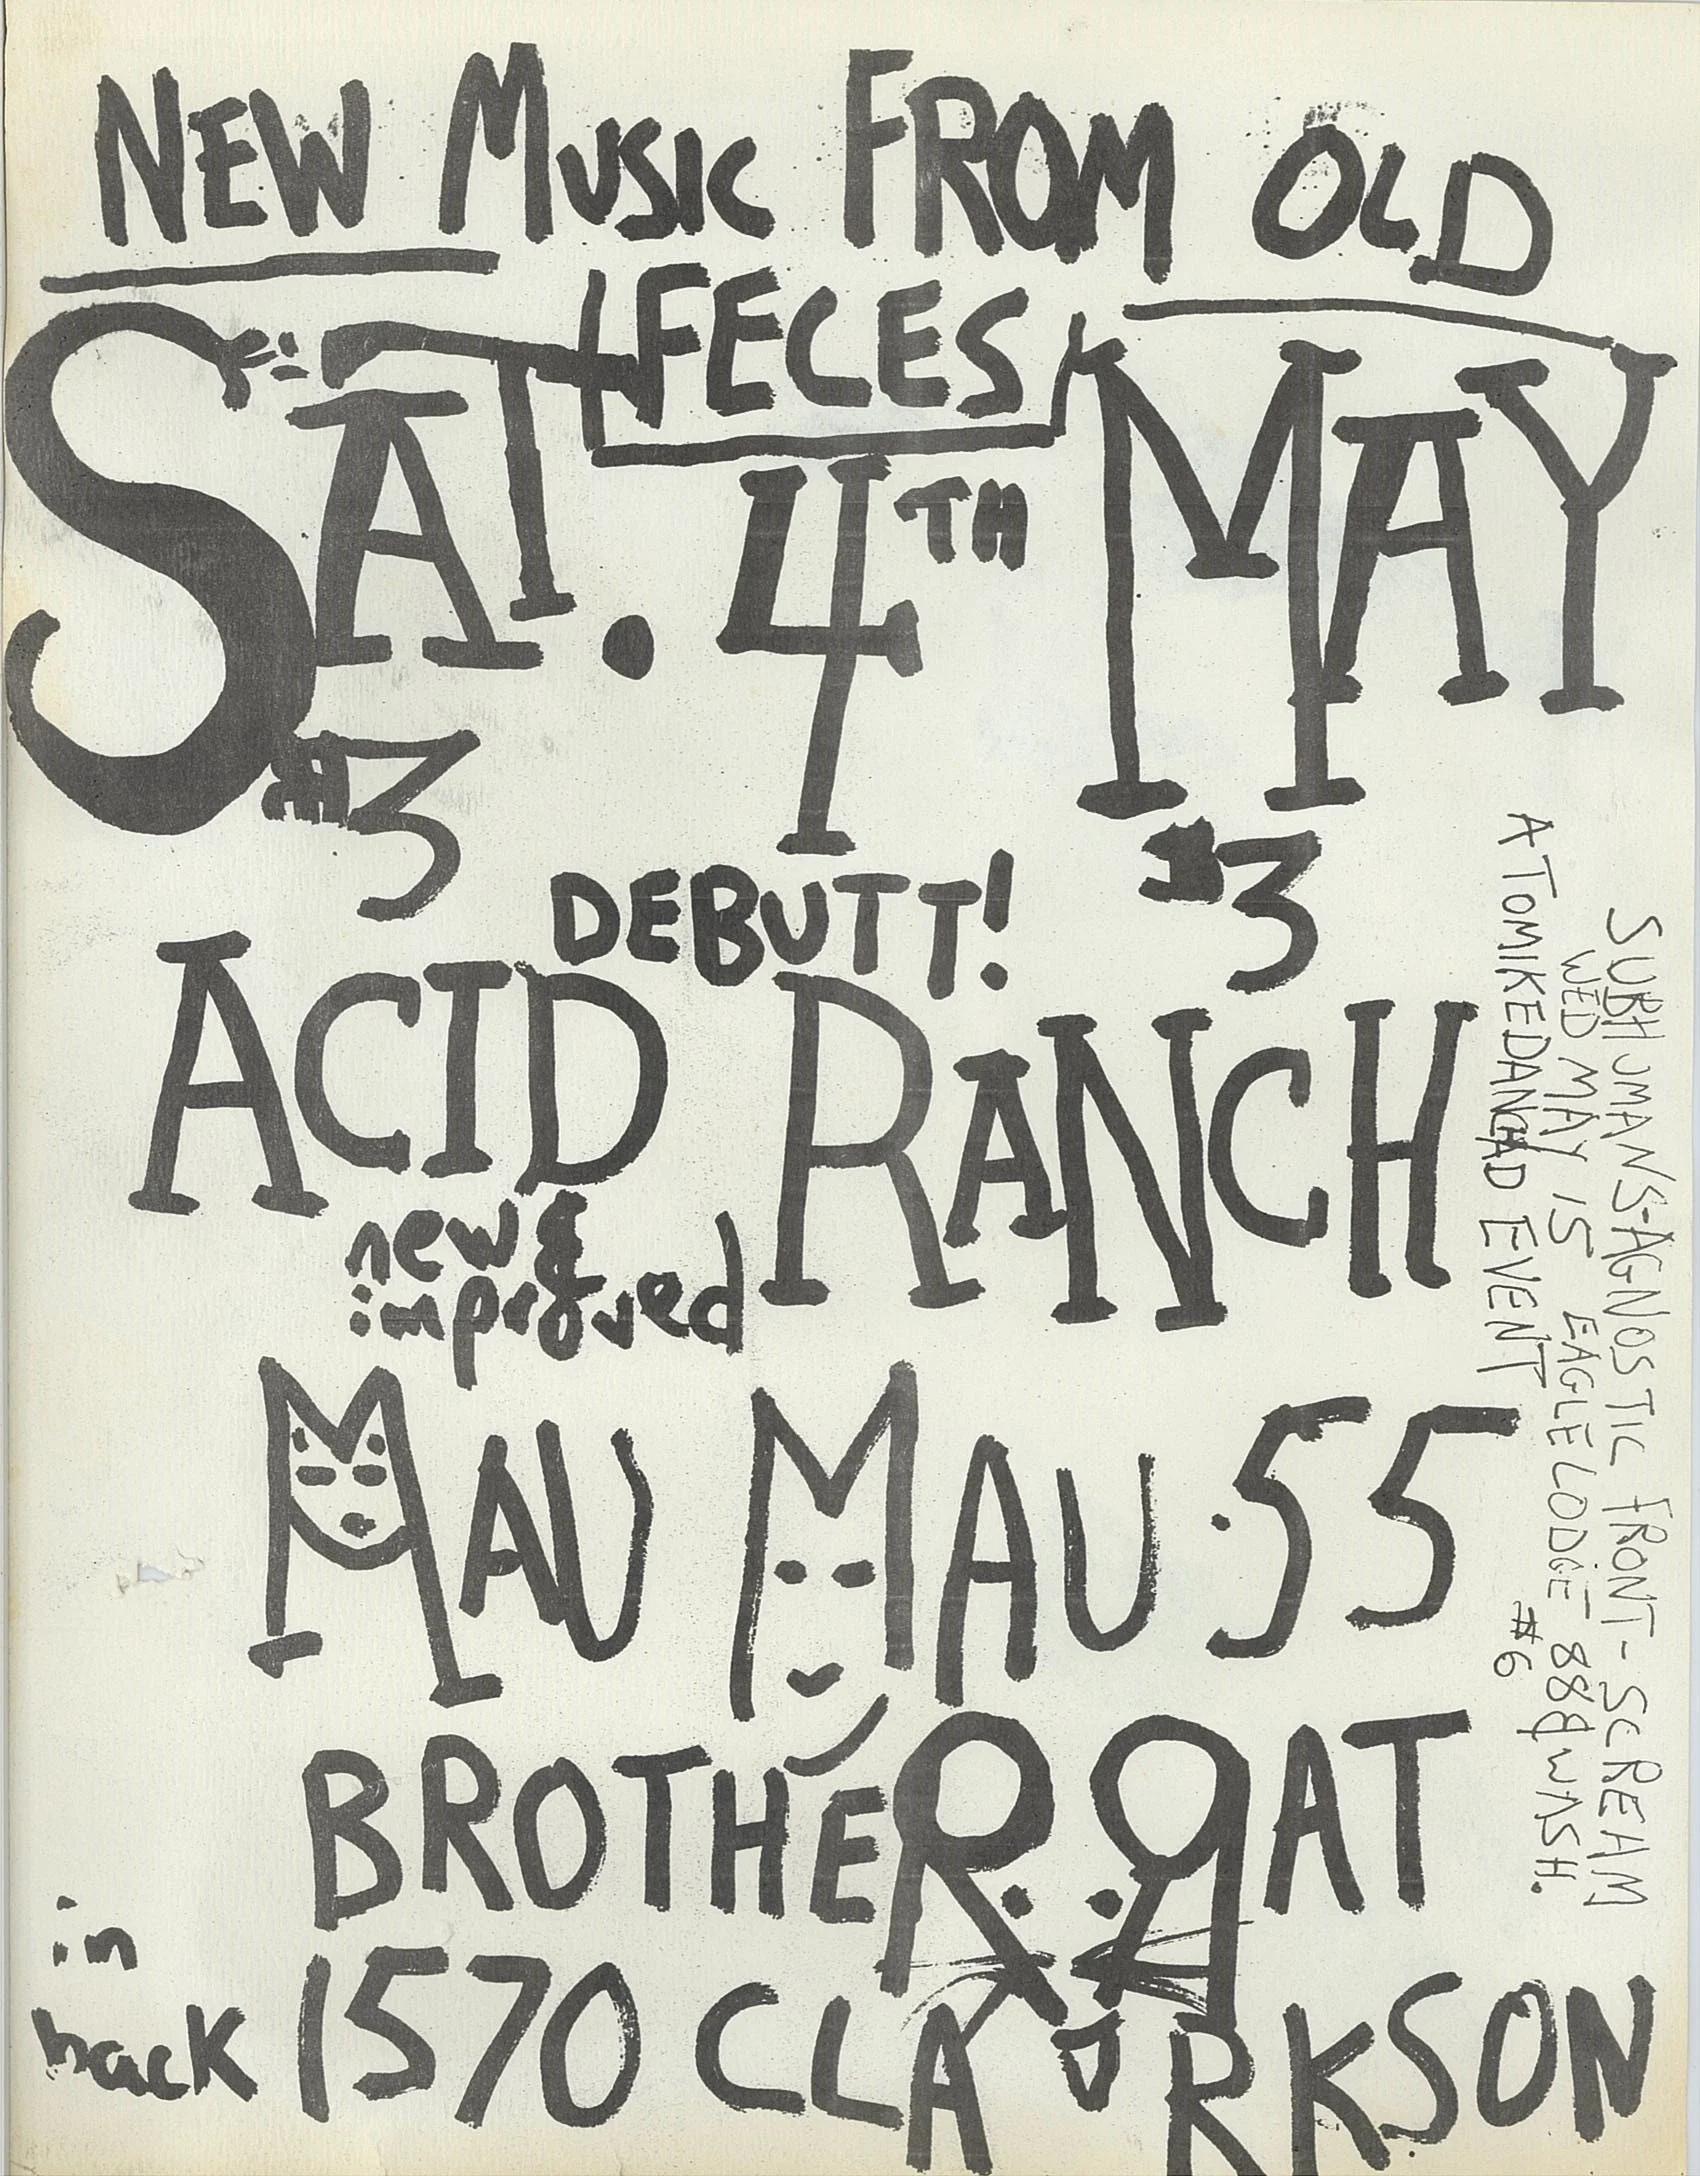 NEW MUSIC FROM OLD
FECES
SAT. 4TH MAY
$3 $3
DEBUTT!
ACID RANCH
new &
improved
MAU MAU 55
BROTHER RAT
in
back 1570 CLARKSON
SUBHUMANS-AGNOSTIC FRONT-SCREAM
WED MAY 15 EAGLE LODGE 888 WASH.
A TOMIKEDANCHAD EVENT #6